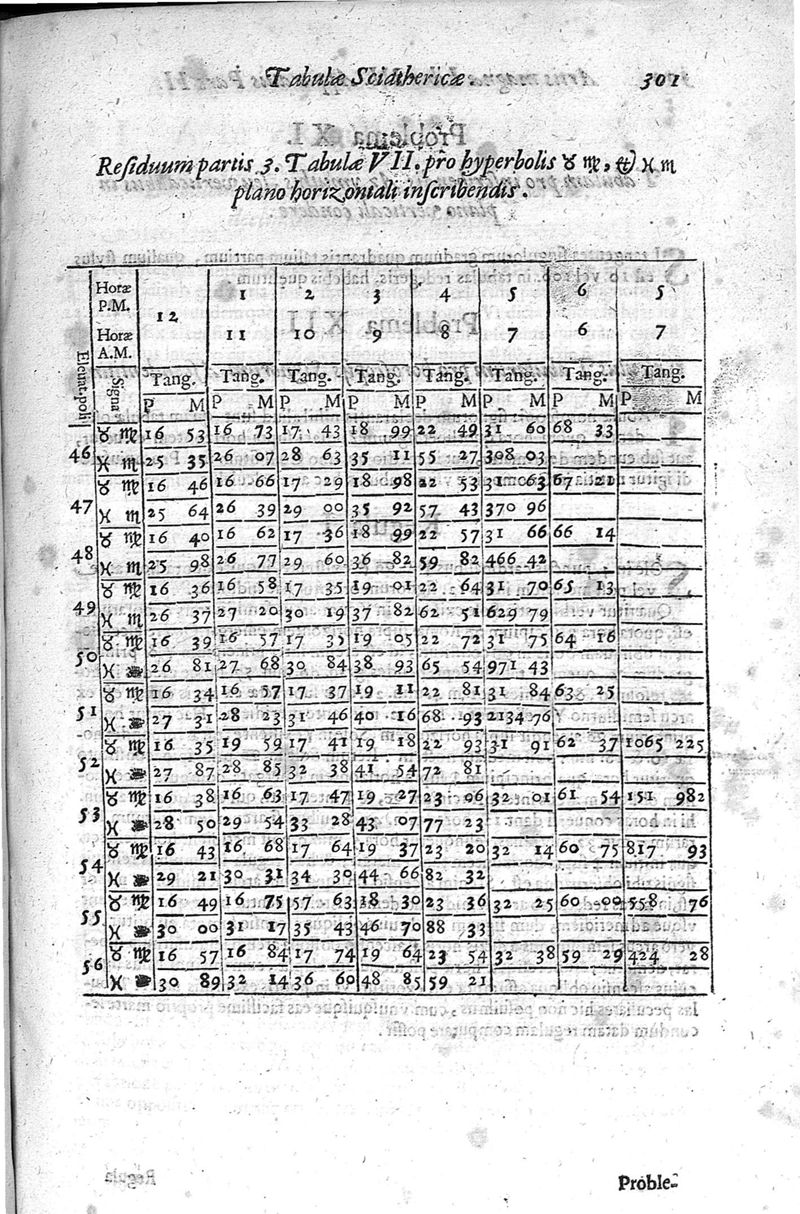 Tabulæ Sciathericæ. 301
Residuum partis 3. Tabulæ VII. pro hyperbolis ♉ ♍, & ♓ ♏
plano horizontali inscribendis.
Horæ P.M. 12 1 2 3 4 5 6 5
Horæ A.M. 11 10 9 8 7 6 7
Eleuat. poli Signa Tang. Tang. Tang. Tang. Tang. Tang. Tang. Tang.
P M P M P M P M P M P M P M P M
46 ♉ ♍ 16 53 16 73 17 43 18 99 22 49 31 60 68 33
♓ ♏ 25 35 26 07 28 63 35 11 55 27 308 03
47 ♉ ♍ 16 46 16 66 17 29 18 98 22 53 31 63 67 21
♓ ♏ 25 64 26 39 29 00 35 92 57 43 370 96
48 ♉ ♍ 16 40 16 62 17 36 18 99 22 57 31 66 66 14
♓ ♏ 25 98 26 77 29 60 36 82 59 82 466 42
49 ♉ ♍ 16 36 16 58 17 35 19 01 22 64 31 70 65 13
♓ ♏ 26 37 27 20 30 19 37 82 62 51 629 79
50 ♉ ♍ 16 39 16 57 17 35 19 05 22 72 31 75 64 16
♓ 26 81 27 68 30 84 38 93 65 54 971 43
51 ♉ ♍ 16 34 16 57 17 37 19 11 22 81 31 84 63 25
♓ 27 31 28 23 31 46 40 16 68 93 2134 76
52 ♉ ♍ 16 35 19 59 17 41 19 18 22 93 31 91 62 37 1065 225
♓ 27 87 28 85 32 38 41 54 72 81
53 ♉ ♍ 16 38 16 63 17 47 19 27 23 06 32 01 61 54 151 982
♓ 28 50 29 54 33 28 43 07 77 23
54 ♉ ♍ 16 43 16 68 17 64 19 37 23 20 32 14 60 75 817 93
♓ 29 21 30 31 34 30 44 66 82 32
55 ♉ ♍ 16 49 16 75 57 63 18 30 23 36 32 25 60 00 558 76
♓ 30 00 31 17 35 43 46 70 88 33
56 ♉ ♍ 16 57 16 84 17 74 19 64 23 54 32 38 59 29 424 28
♓ 30 89 32 14 36 60 48 85 59 21
Proble-